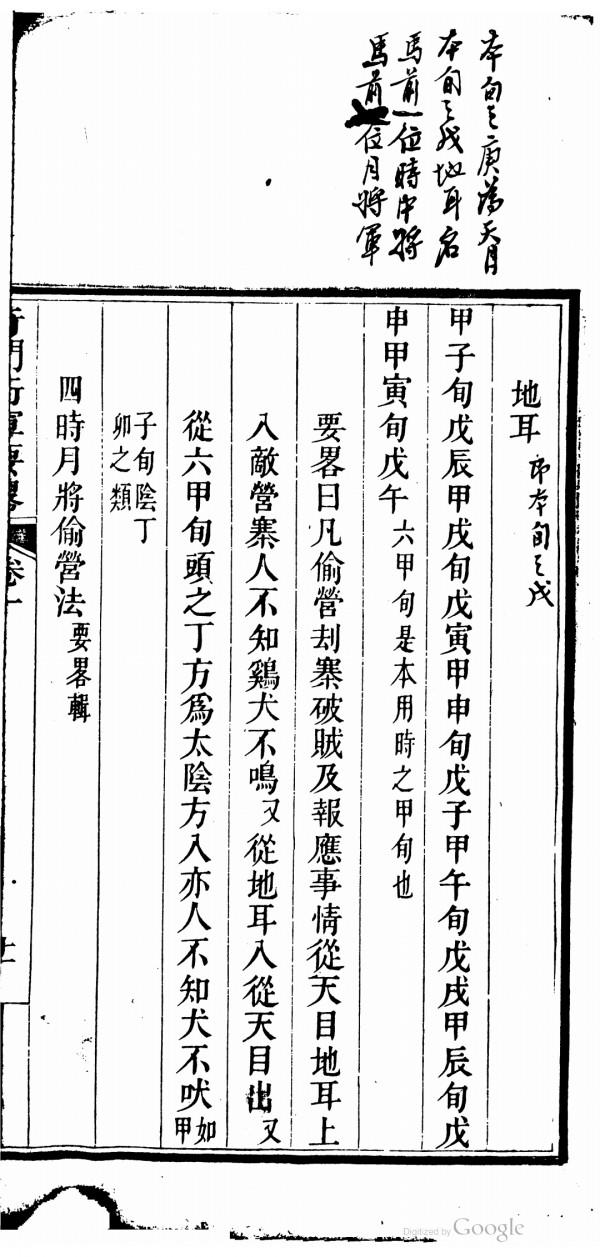 本旬之庚為天目
本旬之戊地耳名
馬前一位時中將
馬前位月將軍
地耳 即本旬之戊
甲子旬戊辰甲戌旬戊寅甲申旬戊子甲午旬戊戌甲辰旬戊
申甲寅旬戊午 六甲旬是本用時之甲旬也
要畧曰凡偷營刦寨破賊及報應事情從天目地耳上
入敵營寨人不知鷄犬不鳴又從地耳入從天目出又
從六甲旬頭之丁方爲太陰方入亦人不知犬不吠如甲
子旬陰丁
卯之類
四時月將偷營法 要畧輯
奇門行軍要畧 卷一
Digitized by Google